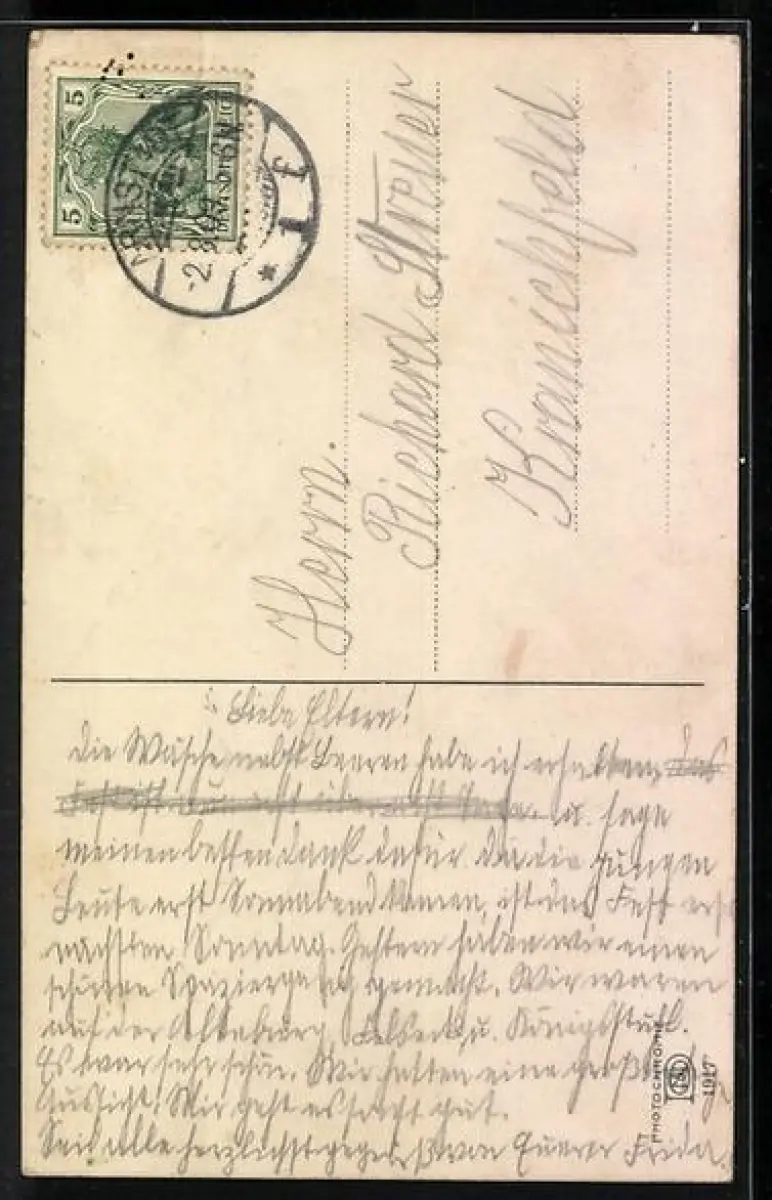 5 5
DEUTSCHES REICH
ARNST
-2.8.09.
* 1 f
Herrn.
Richard Stresser
Kranichfeld
Liebe Eltern!
Die Wäsche nebst Beeren habe ich erhalten, das
u. sage
meinen besten Dank dafür. Da die jungen
Leute erst Sonnabend kamen, ist das Fest erst
nächsten Sonntag. Gestern haben wir einen
schönen Spaziergang gemacht. Wir waren
auf der Alteburg, u. Königsstuhl.
Es war sehr schön. Wir hatten eine großartige
Aussicht. Wir geht es sonst gut.
Seid alle herzlichst gegrüßt von Eurer Frida.
PHOTOCHROMIE
1917